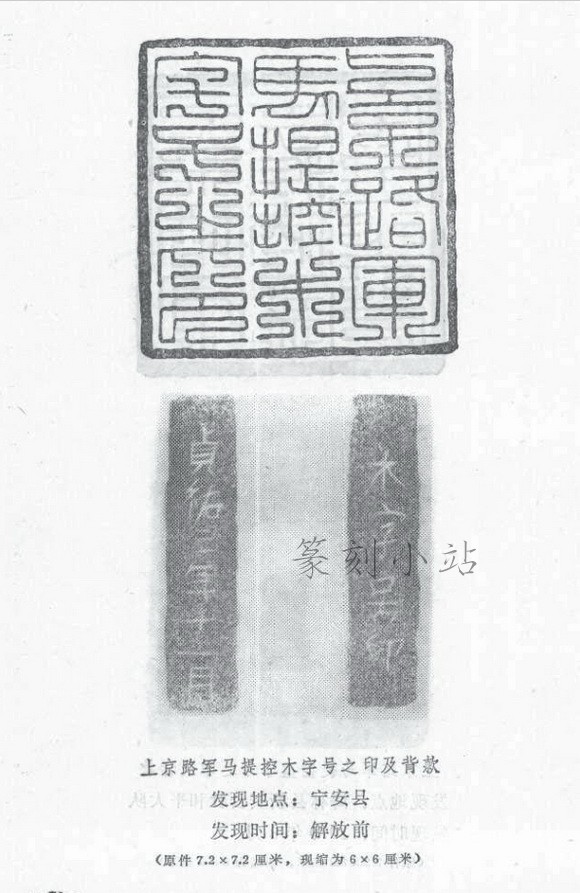 上京路軍
馬提控木
字号之印
木字号印
貞祐三年十一月
篆刻小站
上京路军马提控木字号之印及背款
发现地点：宁安县
发现时间：解放前
（原件 7.2×7.2 厘米，现缩为 6×6 厘米）